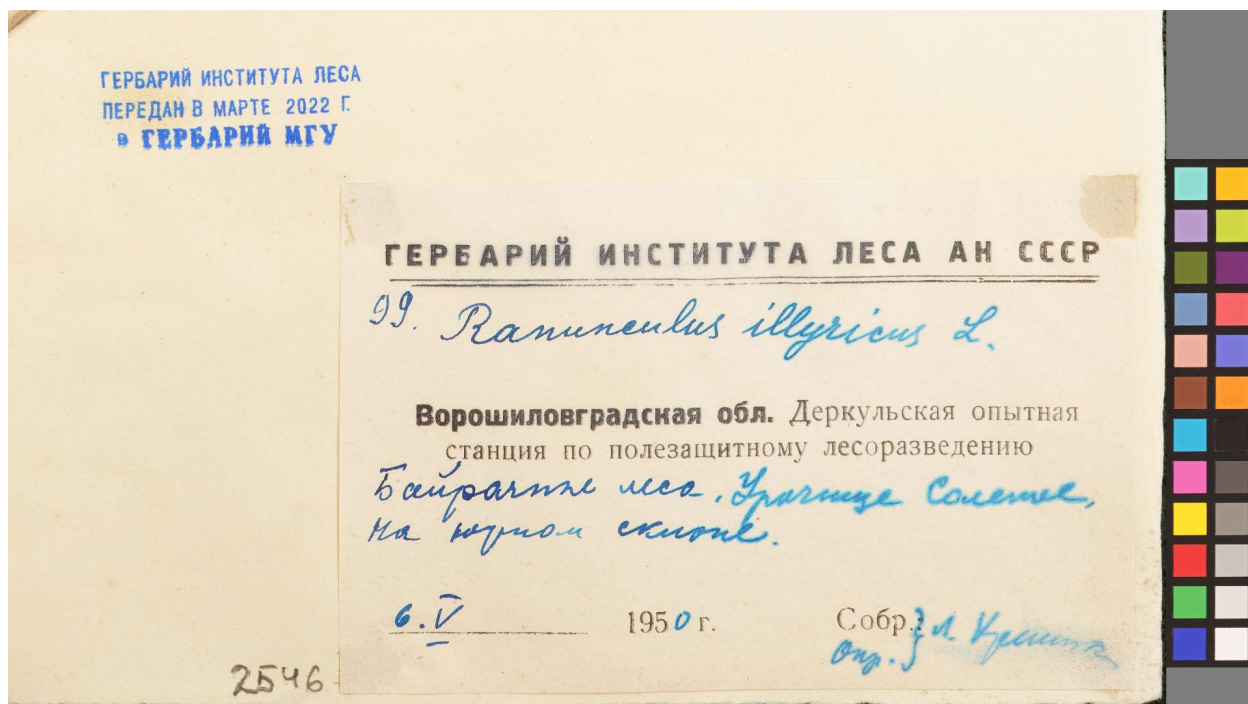 ГЕРБАРИЙ ИНСТИТУТА ЛЕСА
ПЕРЕДАН В МАРТЕ 2022 Г.
В ГЕРБАРИЙ МГУ
ГЕРБАРИЙ ИНСТИТУТА ЛЕСА АН СССР
99. Ranunculus illyricus L.
Ворошиловградская обл. Деркульская опытная
станция по полезащитному лесоразведению
Байрачные леса. Урочище
на южном склоне.
6.V 1950 г. Собр.:
Опр. } Л.
2546